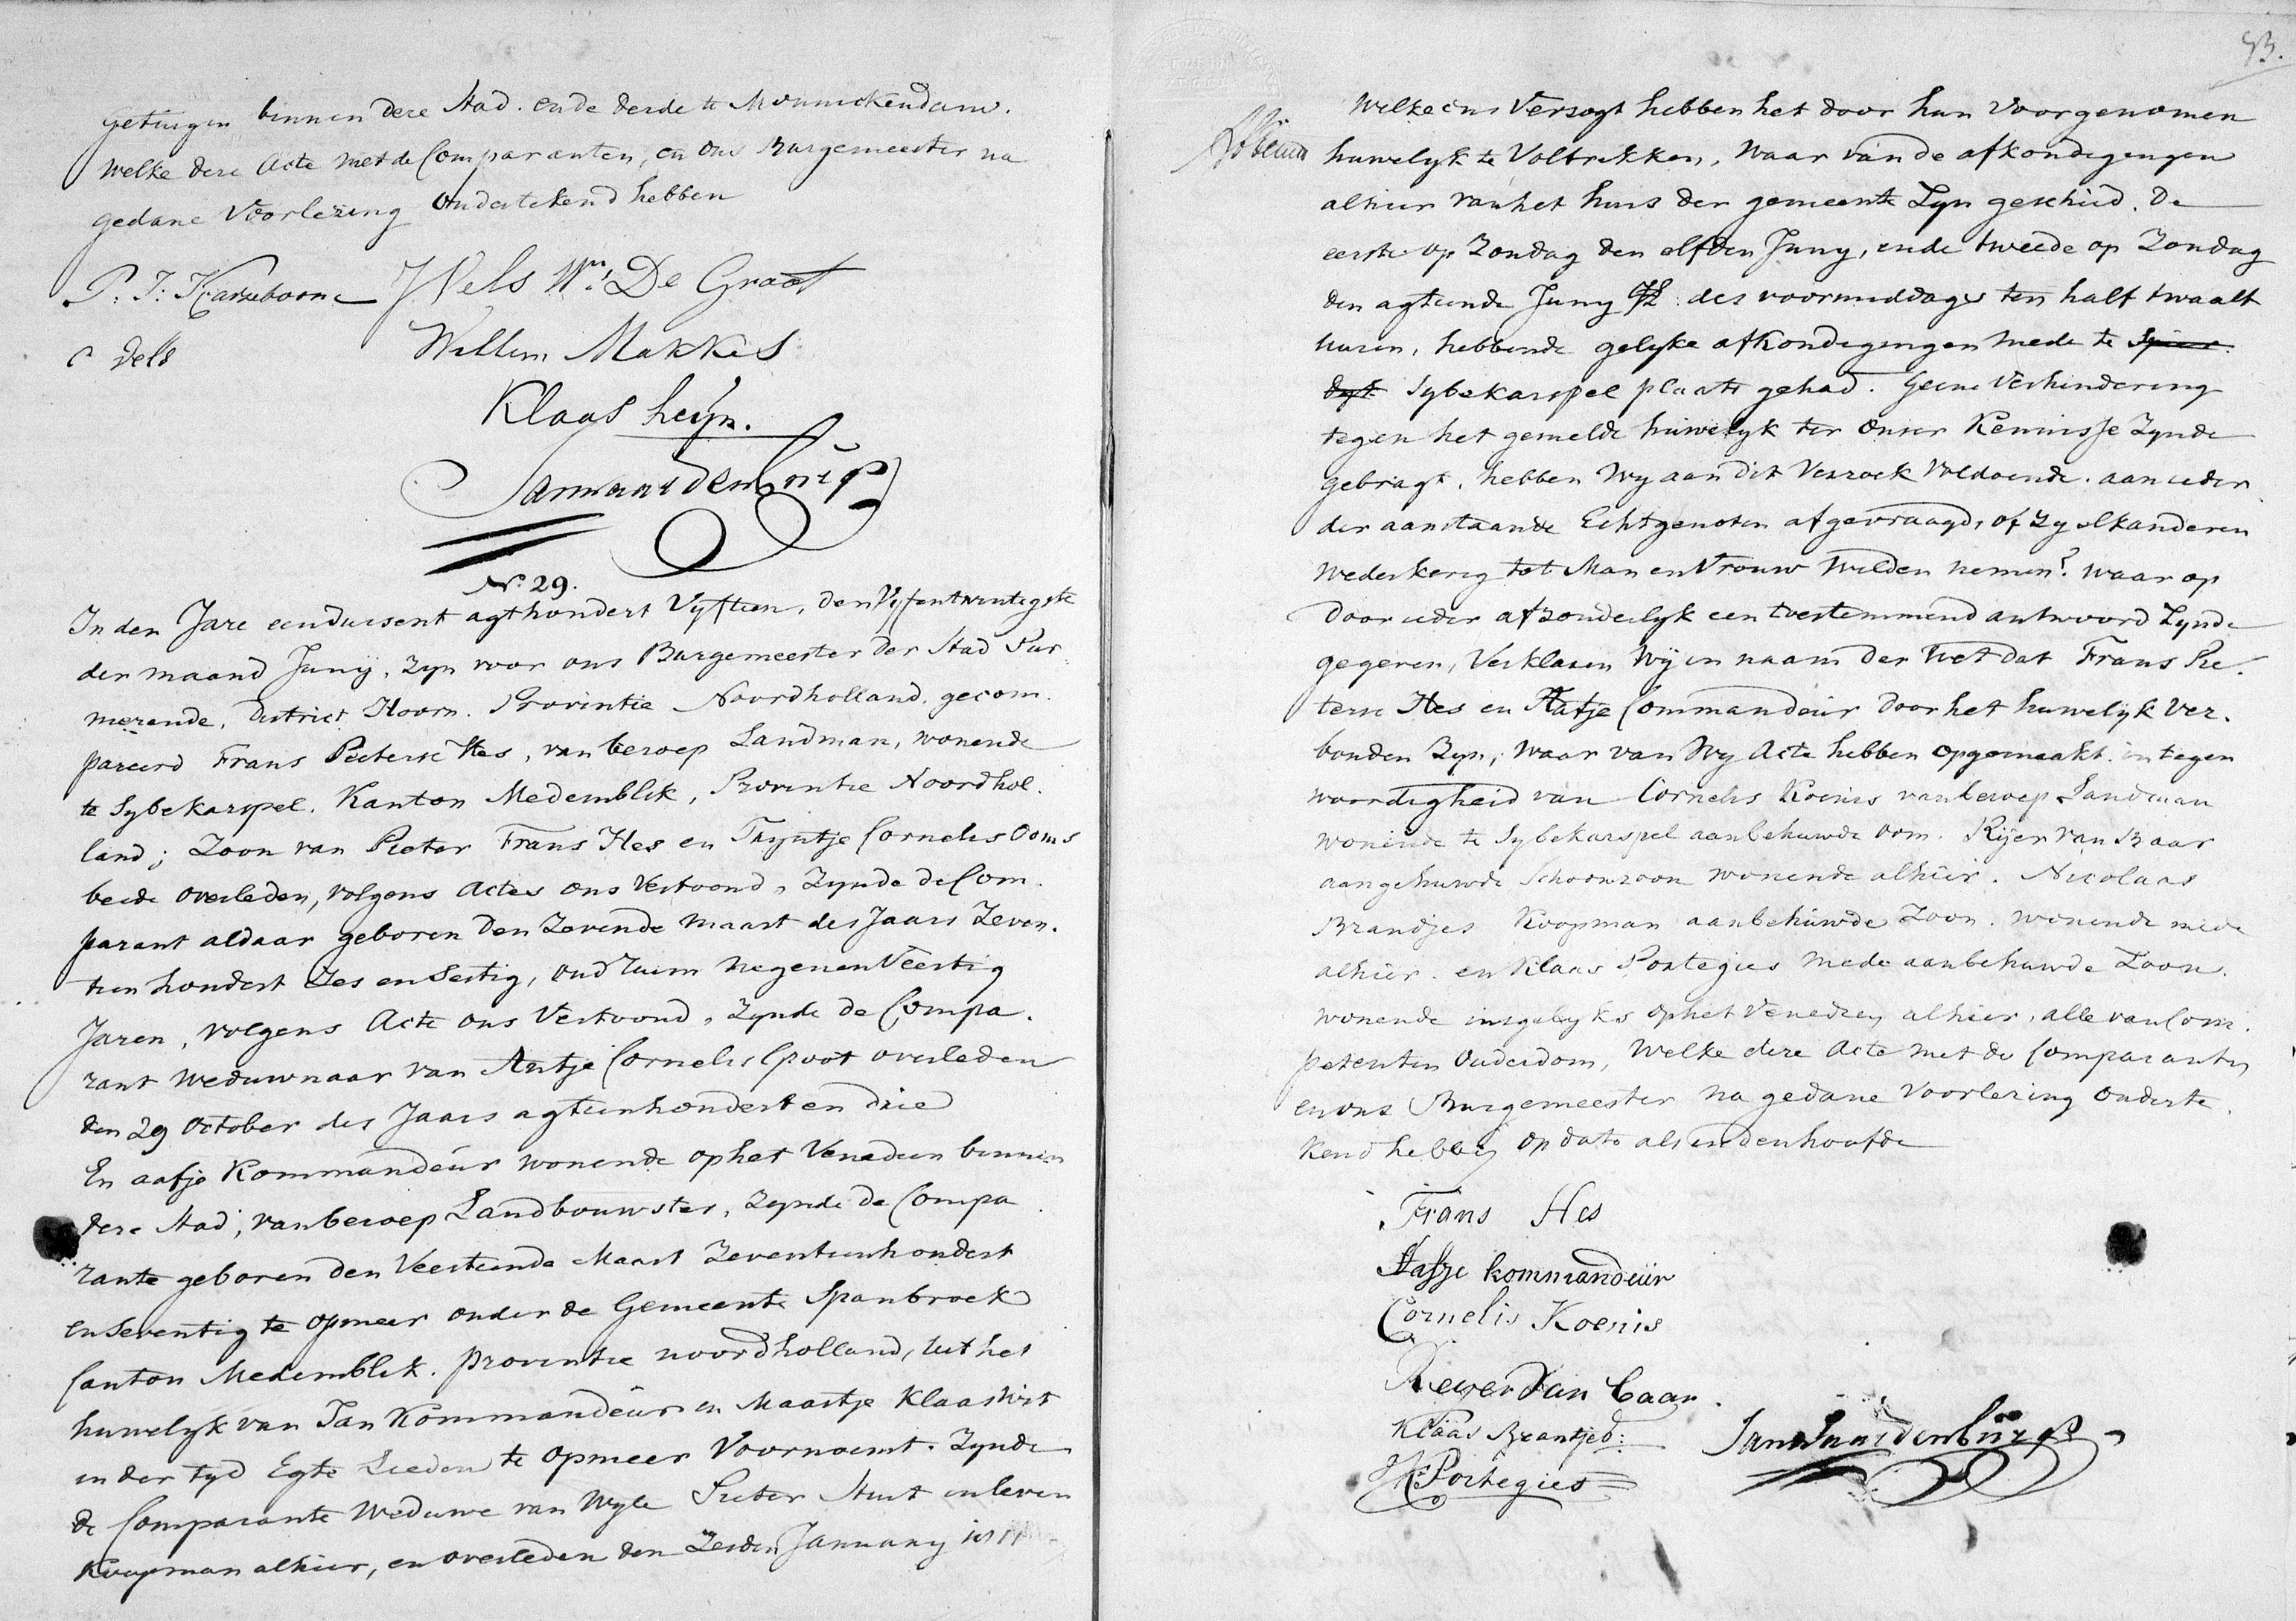 getuigen binnen deze Stad. en de derde te Monnickendam.
welke deze Acte met de Comparanten, en ons Burgemeester na
gedane Voorlezing Ondertekend hebben
P: J: Karseboom J Vels Wm. De Groot
C Vels Willem Makkes
Klaas heijn.
N. 29.
In den Jare eenduisent agthondert Vyftien, den Vyfentwintigste
der maand Juny, Zyn voor ons Burgemeester der Stad Pur
merende, District Hoorn. Provintie Noordholland. gecom
pareerd Frans Pieterse Hes, van beroep Landman, wonende
te Sybekarspel. Kanton Medemblik, Provintie Noordhol.
land; Zoon van Pieter Frans Hes en Thyntje Cornelis Ooms
beide Overleden, volgens Actes ons Vertoond, Zynde de Com.
parant aldaar geboren den Zevende Maart des Jaars Zeven.
tien hondert Zes en Sestig, oud ruim Negenen Veertig
Jaren, volgens Acte ons Vertoond, Zynde de Compa.
rant Weduwnaar van Antje Cornelis Groot overleden
den 29 October des Jaars agttienhondert en drie
En aafje Kommandeur wonende op het Venedien binnen
deze Stad, van beroep Landbouwster, Zynde de Compa
rante geboren den Veertiende Maart Zeventienhondert
en Seventig te Opmeer onder de Gemeente Spanbroek
Canton Medemblik. Provintie noordholland, uit het
huwelyk van Jan Kommandeur en Maartje Klaas Wit
in der tyd Egte Lieden te Opmeer Voornoemt. Zynde
de Comparante Weduwe van Wyle Pieter Stuit in leven
Koopman alhier, en overleden den Zesden January
53.
Welke ons Versogt hebben het door hun Voorgenomen
huwelyk te Voltrekken, Waar van de afkondigingen
alhier van het huis der gemeente Zyn geschied. De
eerste op Zondag den elfden Juny, en de tweede op Zondag
den agttiende Juny des voormiddags ten half twaalf
uuren, hebbende gelyke afkondigingen mede te
Sybekarspel plaats gehad. Geene Verhindering
tegen het gemelde huwelyk ter Onser Kennisse Zynde
gebragt, hebben Wy aan dit Verzoek Voldoende. aan ieder
der aanstaande Echtgenoten afgevraagd, of Zy elkanderen
wederkerig tot Man en Vrouw Wilden nemen? Waar op
door ieder afzonderlyk een toestemmend antwoord Zynde
gegeven, Verklaren Wy in naam der Wet dat Frans Pie
terse Hes en Aafje Commandeur door het huwelyk ver.
bonden Zyn; Waar van Wy Acte hebben opgemaakt. in tegen
woordigheid van Cornelis Koenis van beroep Landman
wonende te Sybekarspel aanbehuwde oom. Rijer Van Baar
aangehuwde Schoonzoon wonende alhier. Nicolaas
Brandjes Koopman aanbehuwde Zoon. wonende mede
alhier. en Klaas Portegies mede aanbehuwde Zoon.
wonende insgelyks op het Venedien alhier, alle van Com.
petenten Ouderdom, Welke deze Acte met de Comparanten
en ons Burgemeester na gedane Voorlezing onderte.
kend hebben op dato als in den hoofde
Frans Hes
Aafje kommandeur
Cornelis Koenis
Reijer Van Baar
Klaas Brantjes:
K: Portegies